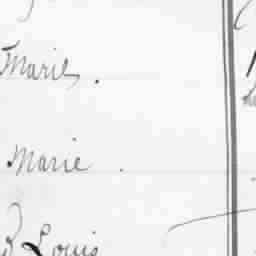 Marie.
Marie.
Louis